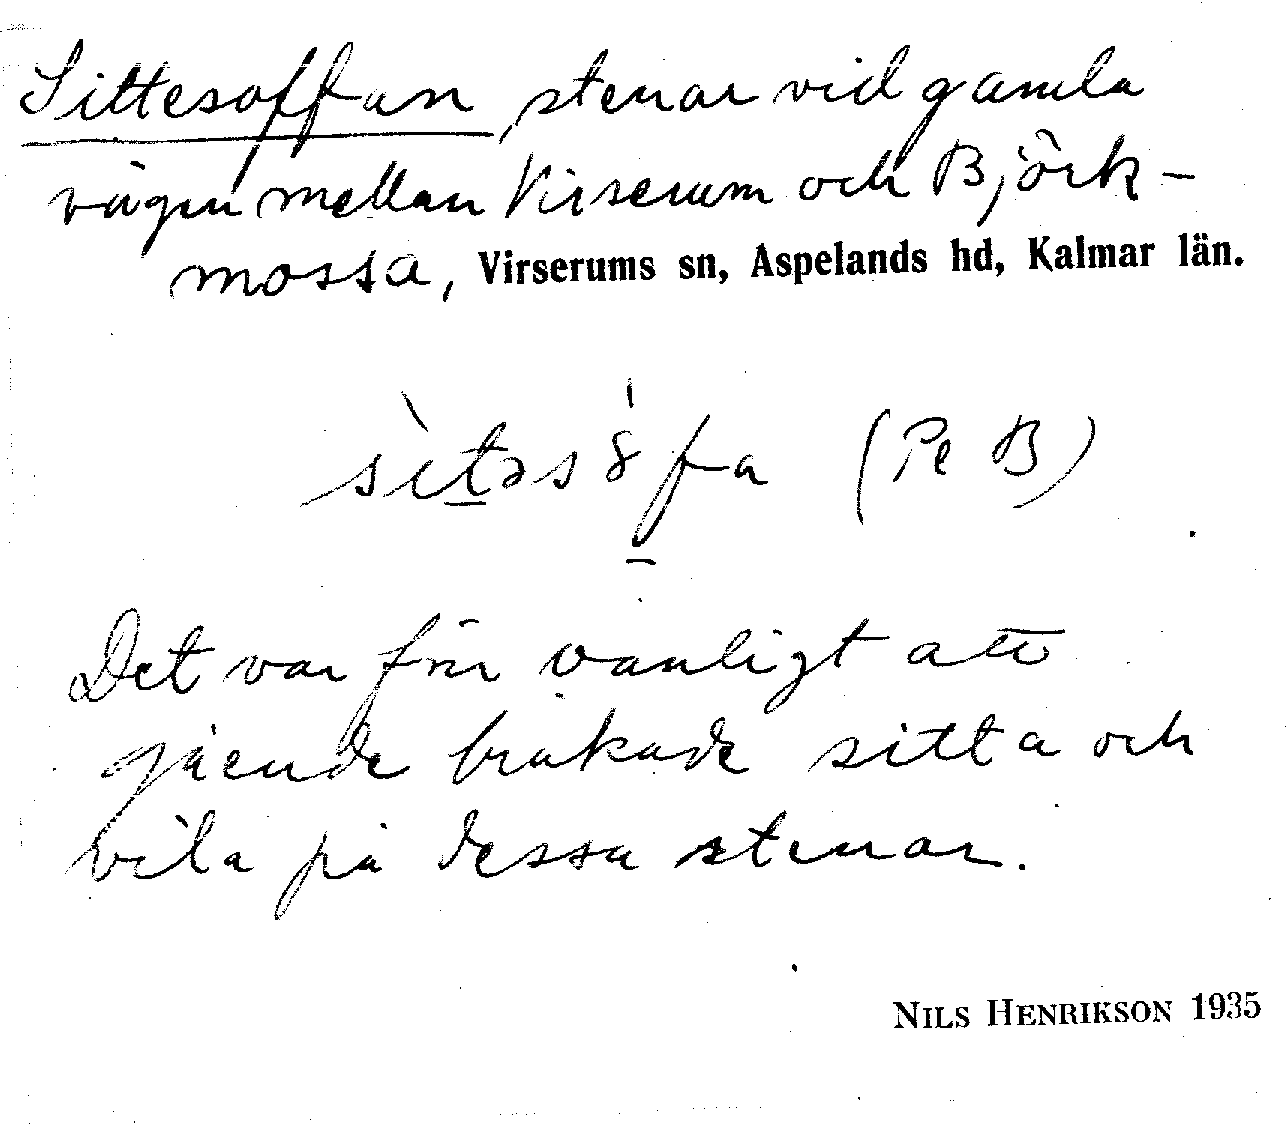 Sittesoffan, stenar vid gamla
vägen mellan Virserum och Björk-
mossa, Virserums sn, Aspelands hd, Kalmar län.
sìtəsȯfa (Pe B)
Det var förr vanligt att
gående brukade sitta och
vila på dessa stenar.
NILS HENRIKSON 1935